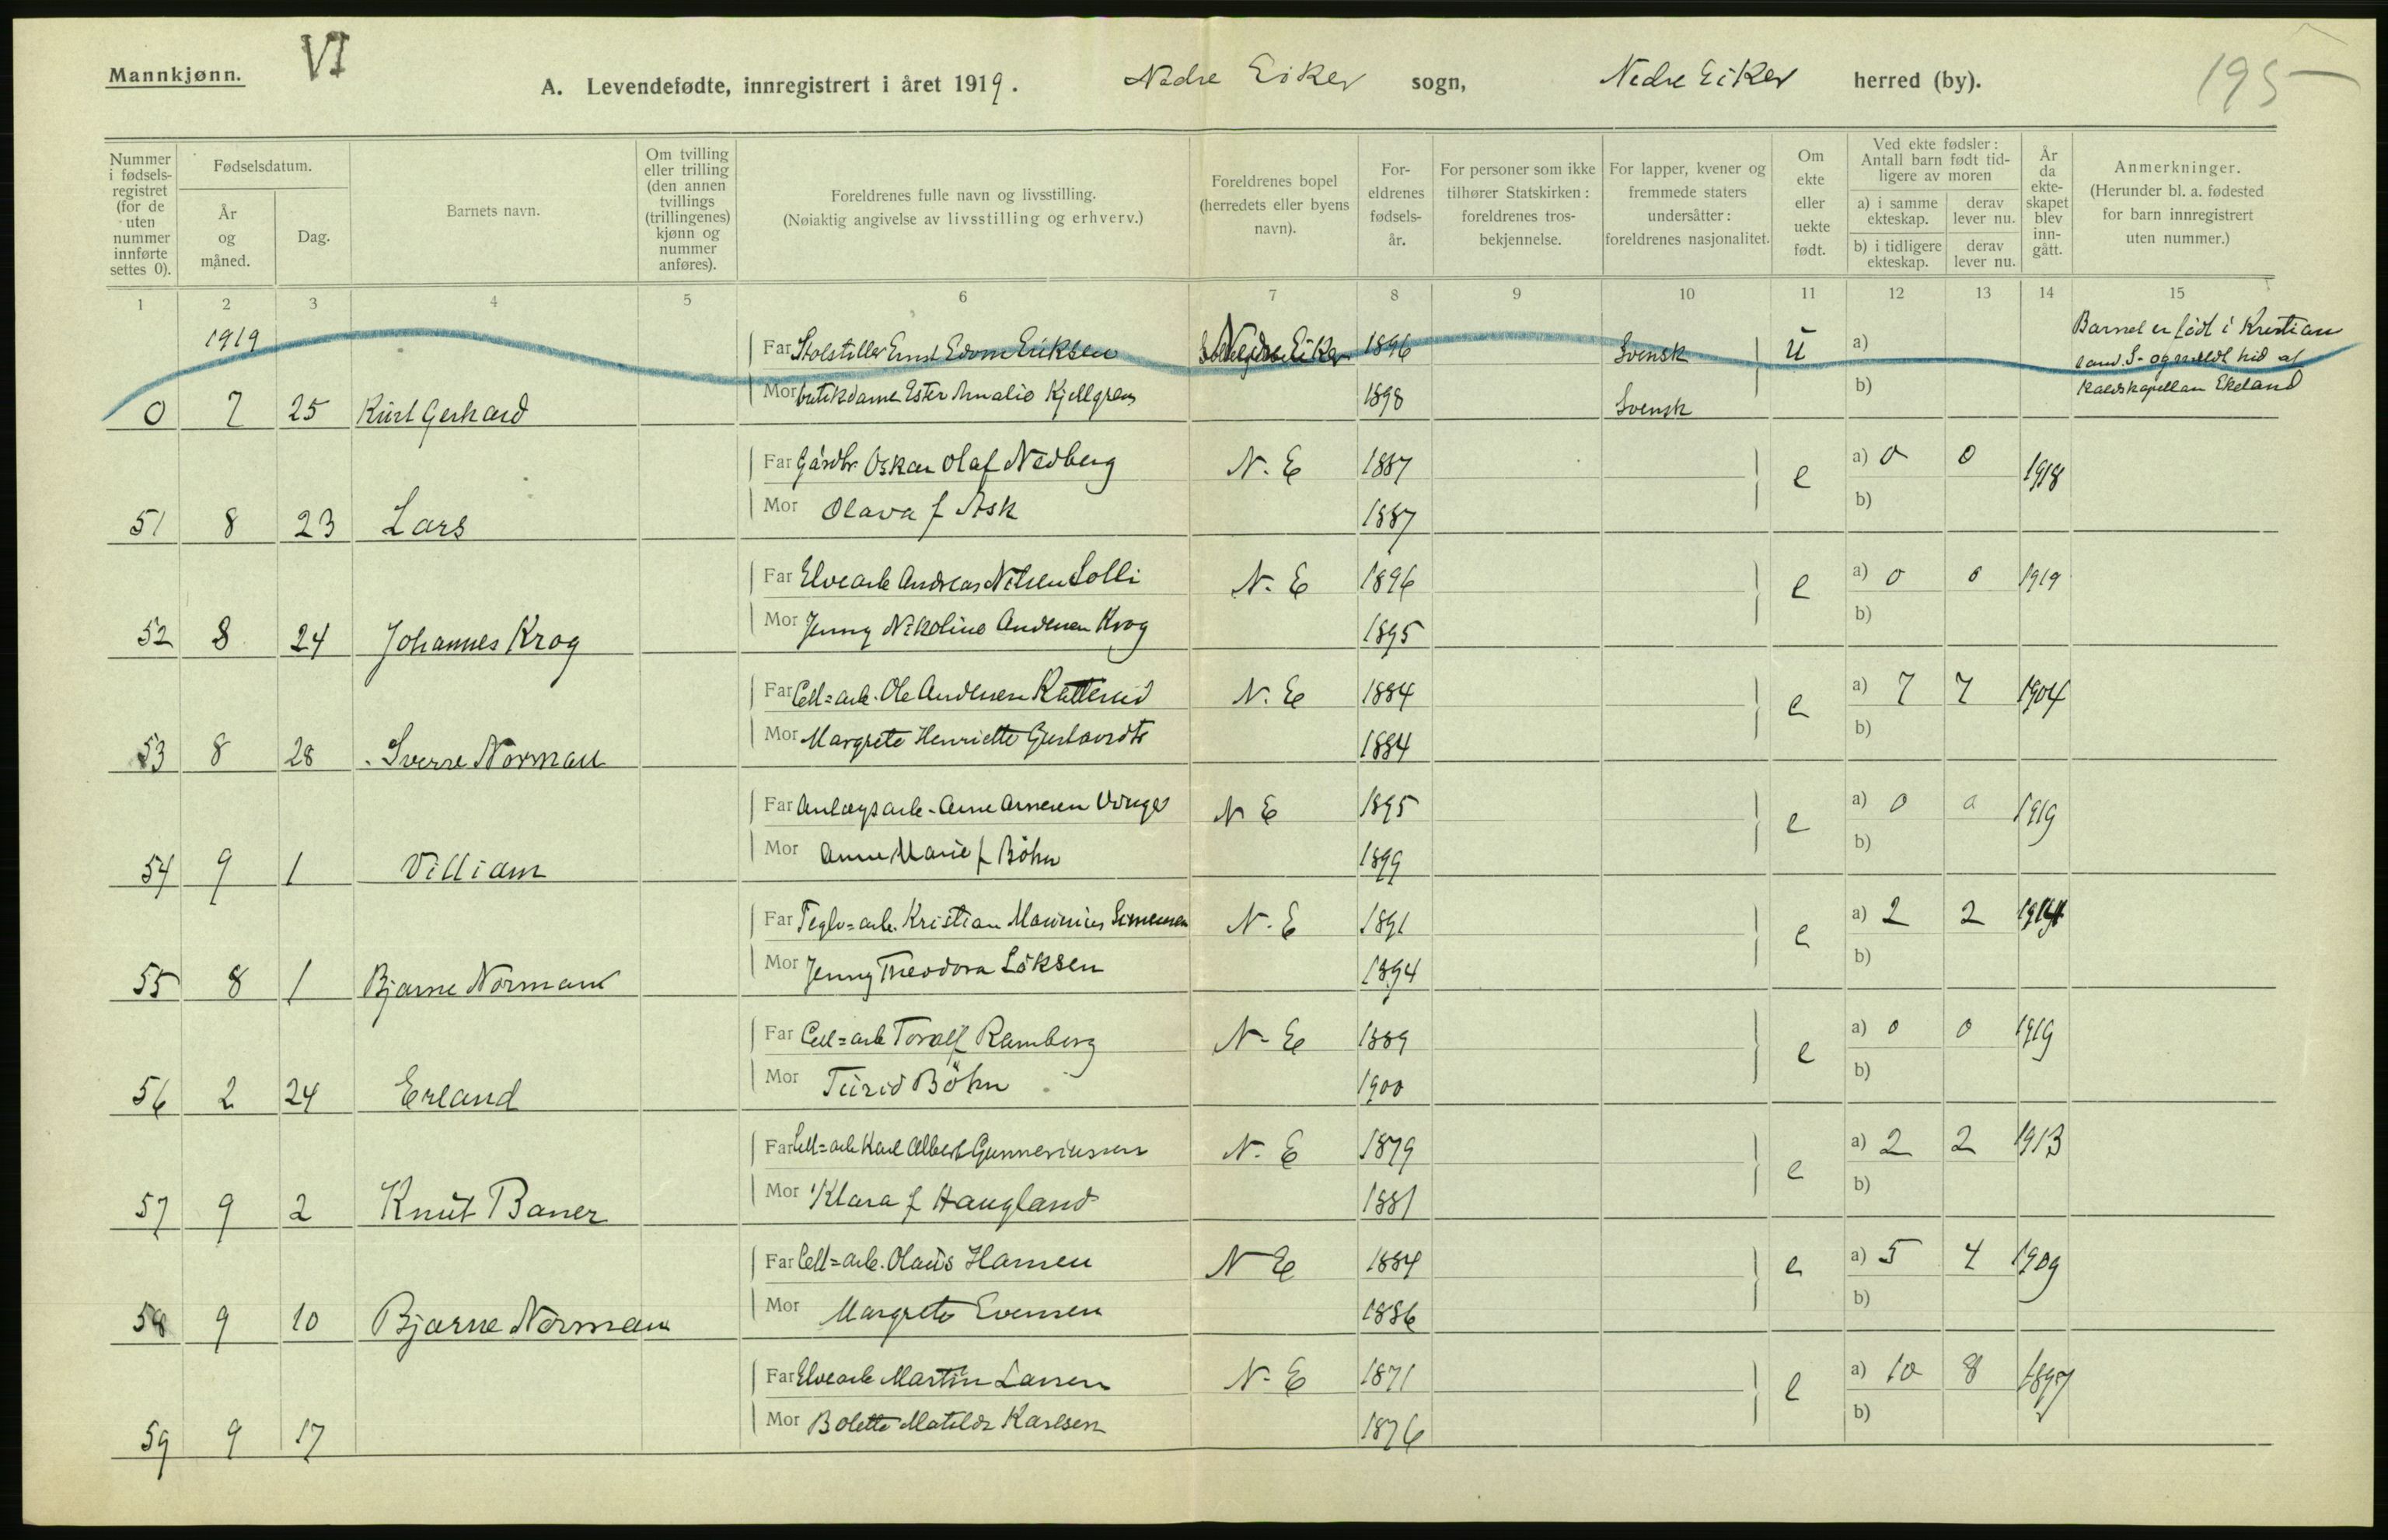 Mannkjønn.
VI
A. Levendefødte, innregistrert i året 1919. Nedre Eiker sogn, Nedre Eiker herred (by).
195
Nummer i fødsels-registret (for de uten nummer innførte settes 0).
Fødselsdatum.
År og måned.
Dag.
Barnets navn.
Om tvilling eller trilling (den annen tvillings (trillingenes) kjønn og nummer anføres).
Foreldrenes fulle navn og livsstilling.
(Nøiaktig angivelse av livsstilling og erhverv.)
Foreldrenes bopel (herredets eller byens navn).
For-eldrenes fødsels-år.
For personer som ikke tilhører Statskirken: foreldrenes tros-bekjennelse.
For lapper, kvener og fremmede staters undersåtter: foreldrenes nasjonalitet.
Om ekte eller uekte født.
Ved ekte fødsler: Antall barn født tid-ligere av moren
a) i samme ekteskap.
derav lever nu.
b) i tidligere ekteskap.
derav lever nu.
År da ekte-skapet blev inn-gått.
Anmerkninger.
(Herunder bl. a. fødested for barn innregistrert uten nummer.)
1 2 3 4 5 6 7 8 9 10 11 12 13 14 15
1919
Far Ernst Edvin Eriksen Nedre Eiker 1896 Svensk U a) Barnet er født i Kristian
sand. S. og meldt hid af
Mor butikdame Ester Amalie Kjellgren 1898 Svensk b) Ekeland
0 7 25 Kurt Gerhard
Far Gårdbr. Oskar Olaf Nedberg N. E 1887 e a) 0 0 1918
Mor Olava f Ask 1887 b)
51 8 23 Lars
Far Elvearb Andreas Nilsen Solli N. E 1896 e a) 0 0 1919
Mor Jenny Nikoline Andersen Krog 1895 b)
52 8 24 Johannes Krog
Far Cell=arb. Ole Andersen N. E 1884 e a) 7 7 1904
Mor Margrete Henriette 1884 b)
53 8 28 Sverre Norman
Far Anlægsarb. Arne Arnesen N E 1895 e a) 0 0 1919
Mor Anne Marie f Böhn 1899 b)
54 9 1 Villiam
Far Teglv=arb. Kristian Marinius Simensen N. E 1891 e a) 2 2 1914
Mor Jenny Theodora Löksen 1894 b)
55 8 1 Bjarne Normann
Far Cell=arb Toralf Ramberg N. E 1889 e a) 0 0 1919
Mor Turid Böhn 1900 b)
56 2 24 Erland
Far Cell=arb Karl Albert Gunneriussen N. E 1879 e a) 2 2 1913
Mor Klara f Haugland 1881 b)
57 9 2 Knut Baner
Far Cell=arb. Olaus Hansen N E 1884 e a) 5 4 1909
Mor Margrete Evensen 1886 b)
58 9 10 Bjarne Norman
Far Elvearb Martin Larsen N. E 1871 e a) 10 8 1897
Mor Bolette Matilde Karlsen 1876 b)
59 9 17